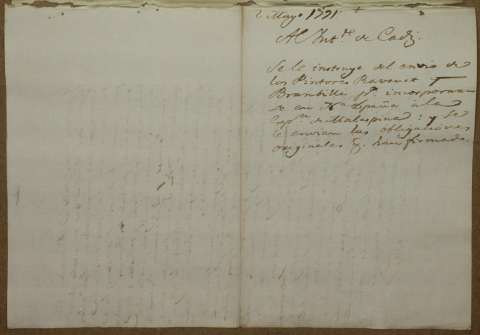 Mayo 1791
Al Int.te de Cadiz.
Se le instruye del envio de
los Pintores Ravenet y
Brambilla p.a incorporar-
se en N.a España à la
Exp.on de Malaspina; y se
le envian las obligaciones
originales q. han firmado.